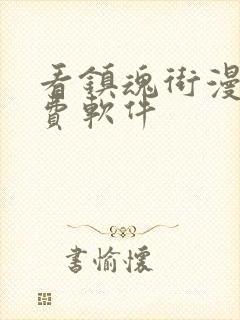 看鎮魂街漫
費軟件
書愉懷